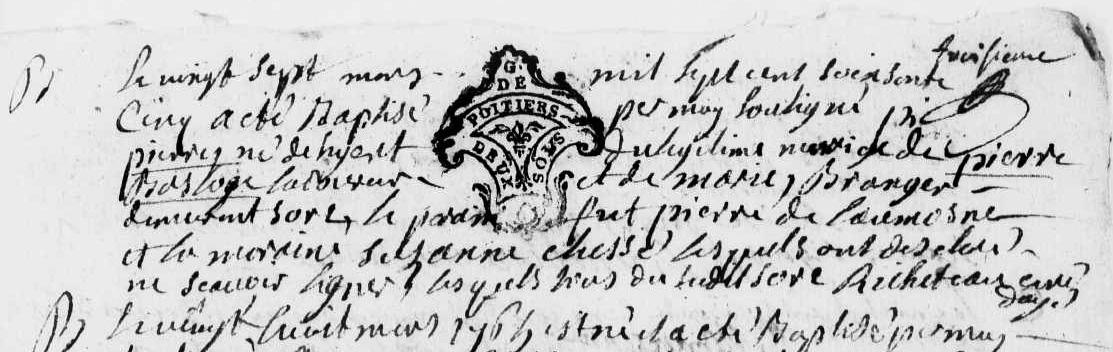 troisieme
Bs le vingt sept mars mil sept cent soixsante
cinq a eté Baptisé par moy soutigné
pierre né de hyer et du legitime mariage de pierre
laboureur et de marie Branger
demeurant sore, le parain fut pierre de laumosne
et la maraine susanne chessé lesquels ont desclaré
ne scavoir signer, lesquels tous du sudit sore Richeteau curé
G. DE POITIERS
DEUX SOLS
Bs le vingt huit mars 1765 est né et a eté Baptisé par moy